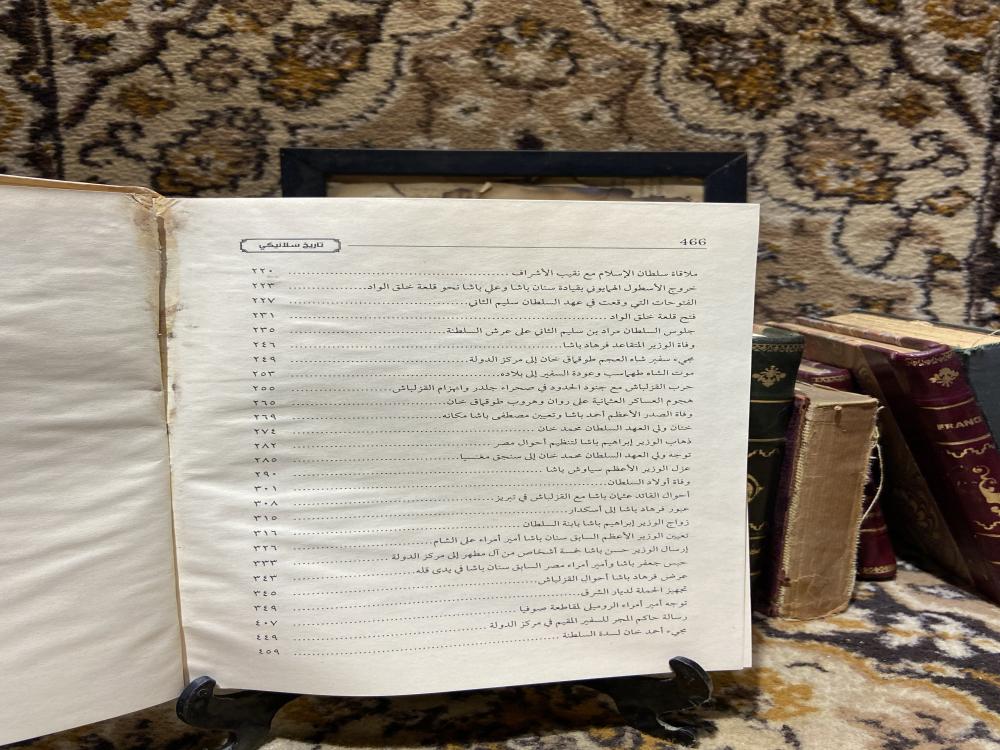 466 تاريخ سلانيكي
ملاقاة سلطان الإسلام مع نقيب الأشراف ٢٢٠
خروج الأسطول الهمايوني بقيادة سنان باشا وعلي باشا نحو قلعة خلق الواد ٢٢٣
الفتوحات التي وقعت في عهد السلطان سليم الثاني ٢٢٧
فتح قلعة خلق الواد ٢٣١
جلوس السلطان مراد بن سليم الثاني على عرش السلطنة ٢٣٥
وفاة الوزير المتقاعد فرهاد باشا ٢٤٦
مجيء سفير شاه العجم طوقماق خان إلى مركز الدولة ٢٤٩
موت الشاه طهماسب وعودة السفير إلى بلاده ٢٥٣
حرب القزلباش مع جنود الحدود في صحراء جلدر وانهزام القزلباش ٢٥٥
هجوم العساكر العثمانية على روان وهروب طوقماق خان ٢٦٥
وفاة الصدر الأعظم أحمد باشا وتعيين مصطفى باشا مكانه ٢٦٩
ختان ولي العهد السلطان محمد خان ٢٧٤
ذهاب الوزير إبراهيم باشا لتنظيم أحوال مصر ٢٨٢
توجه ولي العهد السلطان محمد خان إلى سنجق مغنسيا ٢٨٥
عزل الوزير الأعظم سياوش باشا ٢٩٠
وفاة أولاد السلطان ٣٠١
أحوال القائد عثمان باشا مع القزلباش في تبريز ٣٠٨
عبور فرهاد باشا إلى أسكدار ٣١٥
زواج الوزير إبراهيم باشا بابنة السلطان ٣١٦
تعيين الوزير الأعظم السابق سنان باشا أمير أمراء على الشام ٣٢٦
إرسال الوزير حسن باشا خمسة أشخاص من آل مطهر إلى مركز الدولة ٣٣٣
حبس جعفر باشا وأمير أمراء مصر السابق سنان باشا في يدى قله ٣٤٣
عرض فرهاد باشا أحوال القزلباش ٣٤٥
تجهيز الحملة لديار الشرق ٣٤٩
توجه أمير أمراء الروميلي لمقاطعة صوفيا ٤٠٧
رسالة حاكم المجر للسفير المقيم في مركز الدولة ٤٤٩
مجيء أحمد خان لسدة السلطنة ٤٥٩
FRANC